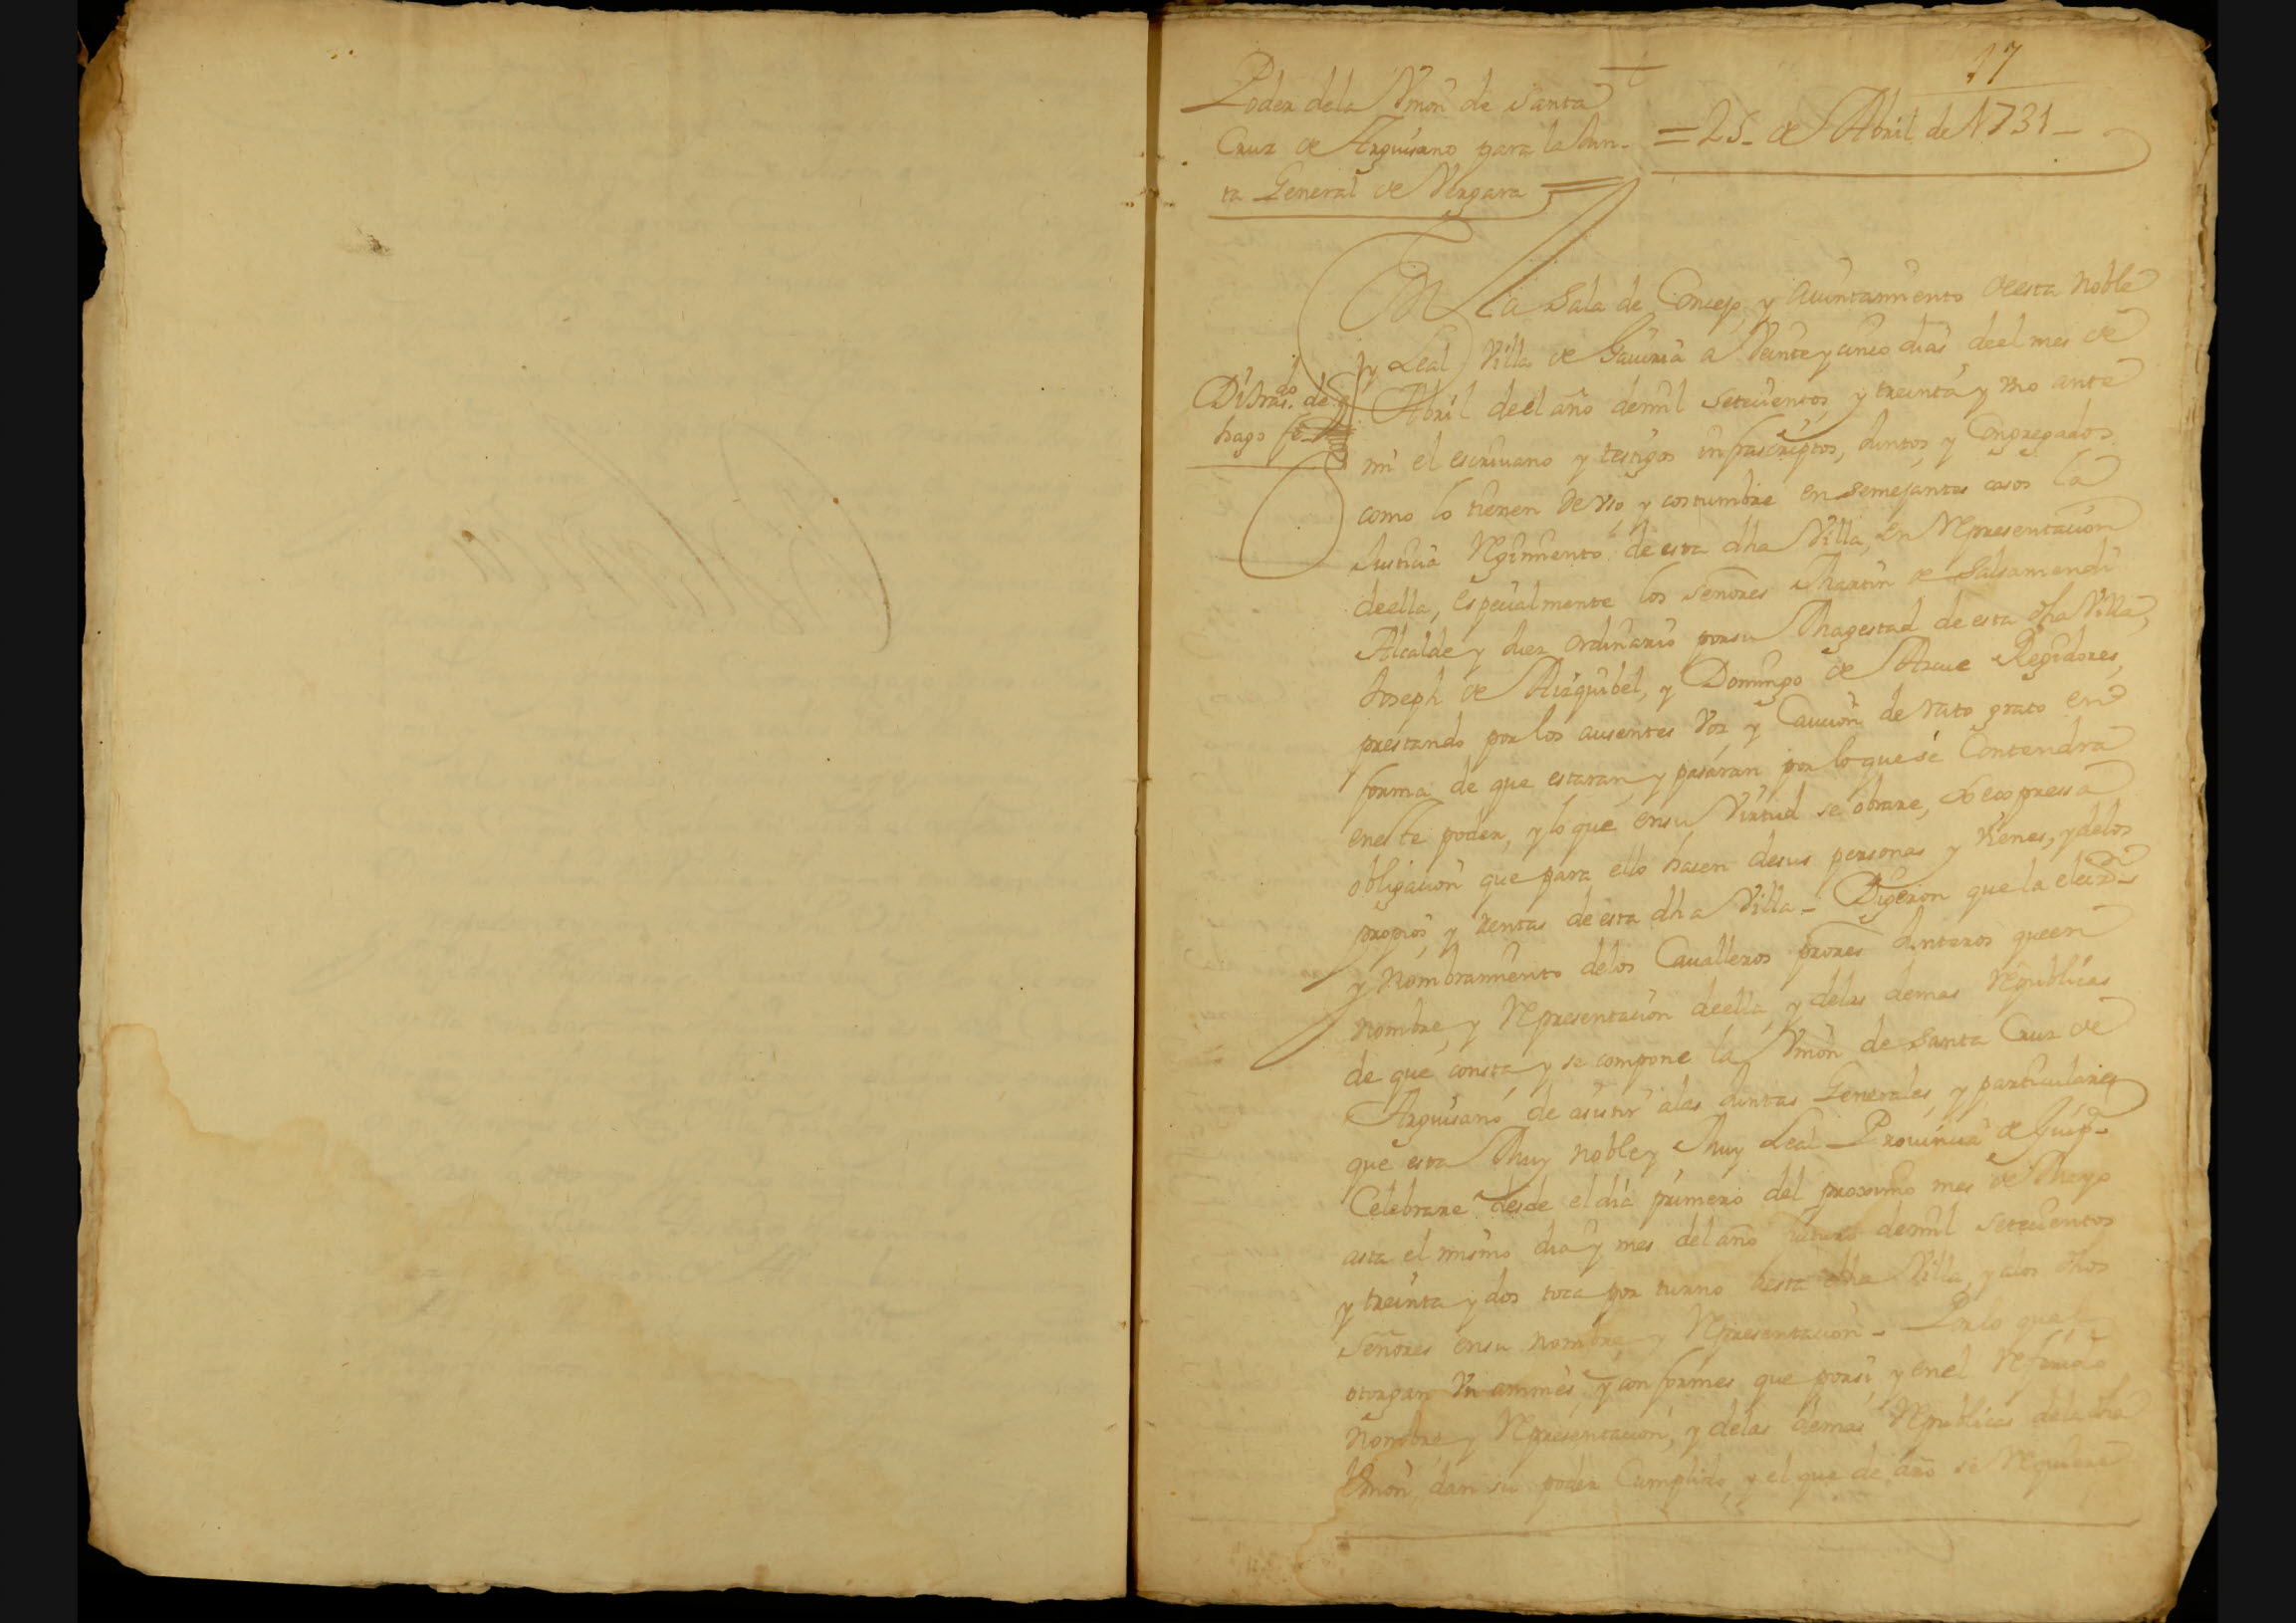 17
Poder dela Vnion de Santa
Cruz de Arguisano para la Jun-
ta General de Vergara =
= 25 - de Abril de 1731 -
En la Sala de Concejo, y Auintamiento de esta Noble
y Leal Villa de Gauiria a Veinte y cinco dias de el mes de
Abril de el año de mil setecientos y treinta y vno ante
mi el escriuano y testigos infrascriptos, Juntos, y Congregados
como lo tienen de vso y costumbre en semejantes casos la
Justicia Regimiento de esta dha Villa, en Representacion
de ella, especialmente los señores Martin de Salsamendi
Alcalde y Juez ordinario por su Magestad de esta dha Villa,
Joseph de Aizquibel, y Domingo de Arcue Regidores,
prestando por los ausentes Voz y Caucion de rato grato en
forma de que estaran, y pasaran por lo que se Contendra
en este poder, y lo que en su Virtud se obrare, so expressa
obligacion que para ello hacen de sus personas y vienes, y delos
propios, y rentas de esta dha Villa - Digeron que la elecon
y Nombramiento delos Caualleros prores Junteros que en
nombre, y Representacion de ella, y delas demas Republicas
de que consta y se compone la Vnion de Santa Cruz de
Arguisano, de asistir alas Juntas Generales, y particulares
que esta Muy Noble y Muy Leal Prouincia de Guipa
Celebrare desde el dia primero del proximo mes de Mayo
asta el mismo dia y mes del año de mil setecientos
y treinta y dos toca por turno aesta dha Villa, y alos dhos
Señores en su nombre y Representacion - Por lo qual
otorgan Vnanimes, y conformes que por si, y en el Referido
Nombre y Representacion, y delas demas Republicas dela dha
Vnion, dan su poder Cumplido, y el que de dro se Requiere
Di tras.do de q
hago fe